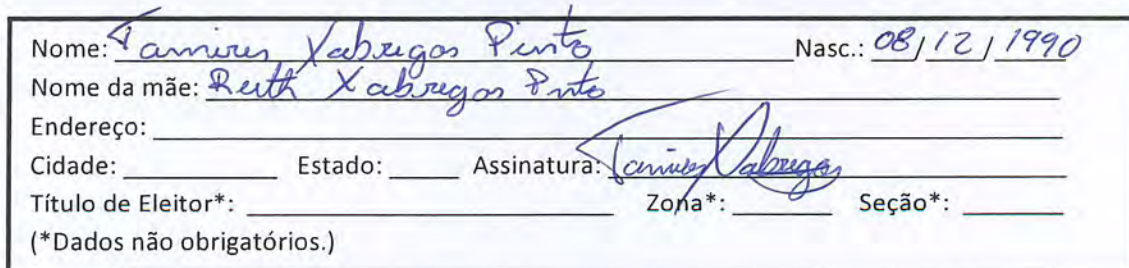 Nome: Tamires Xabregas Pinto Nasc.: 08/12/1990
Nome da mãe: Ruth Xabregas Pinto
Endereço:
Cidade: Estado: Assinatura: Tamires Xabregas
Título de Eleitor*: Zona*: Seção*:
(*Dados não obrigatórios.)